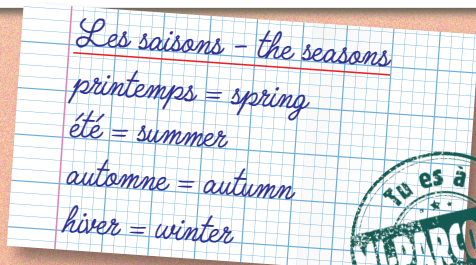 Les saisons – the seasons
printemps = spring
été = summer
automne = autumn
hiver = winter
Tu es à